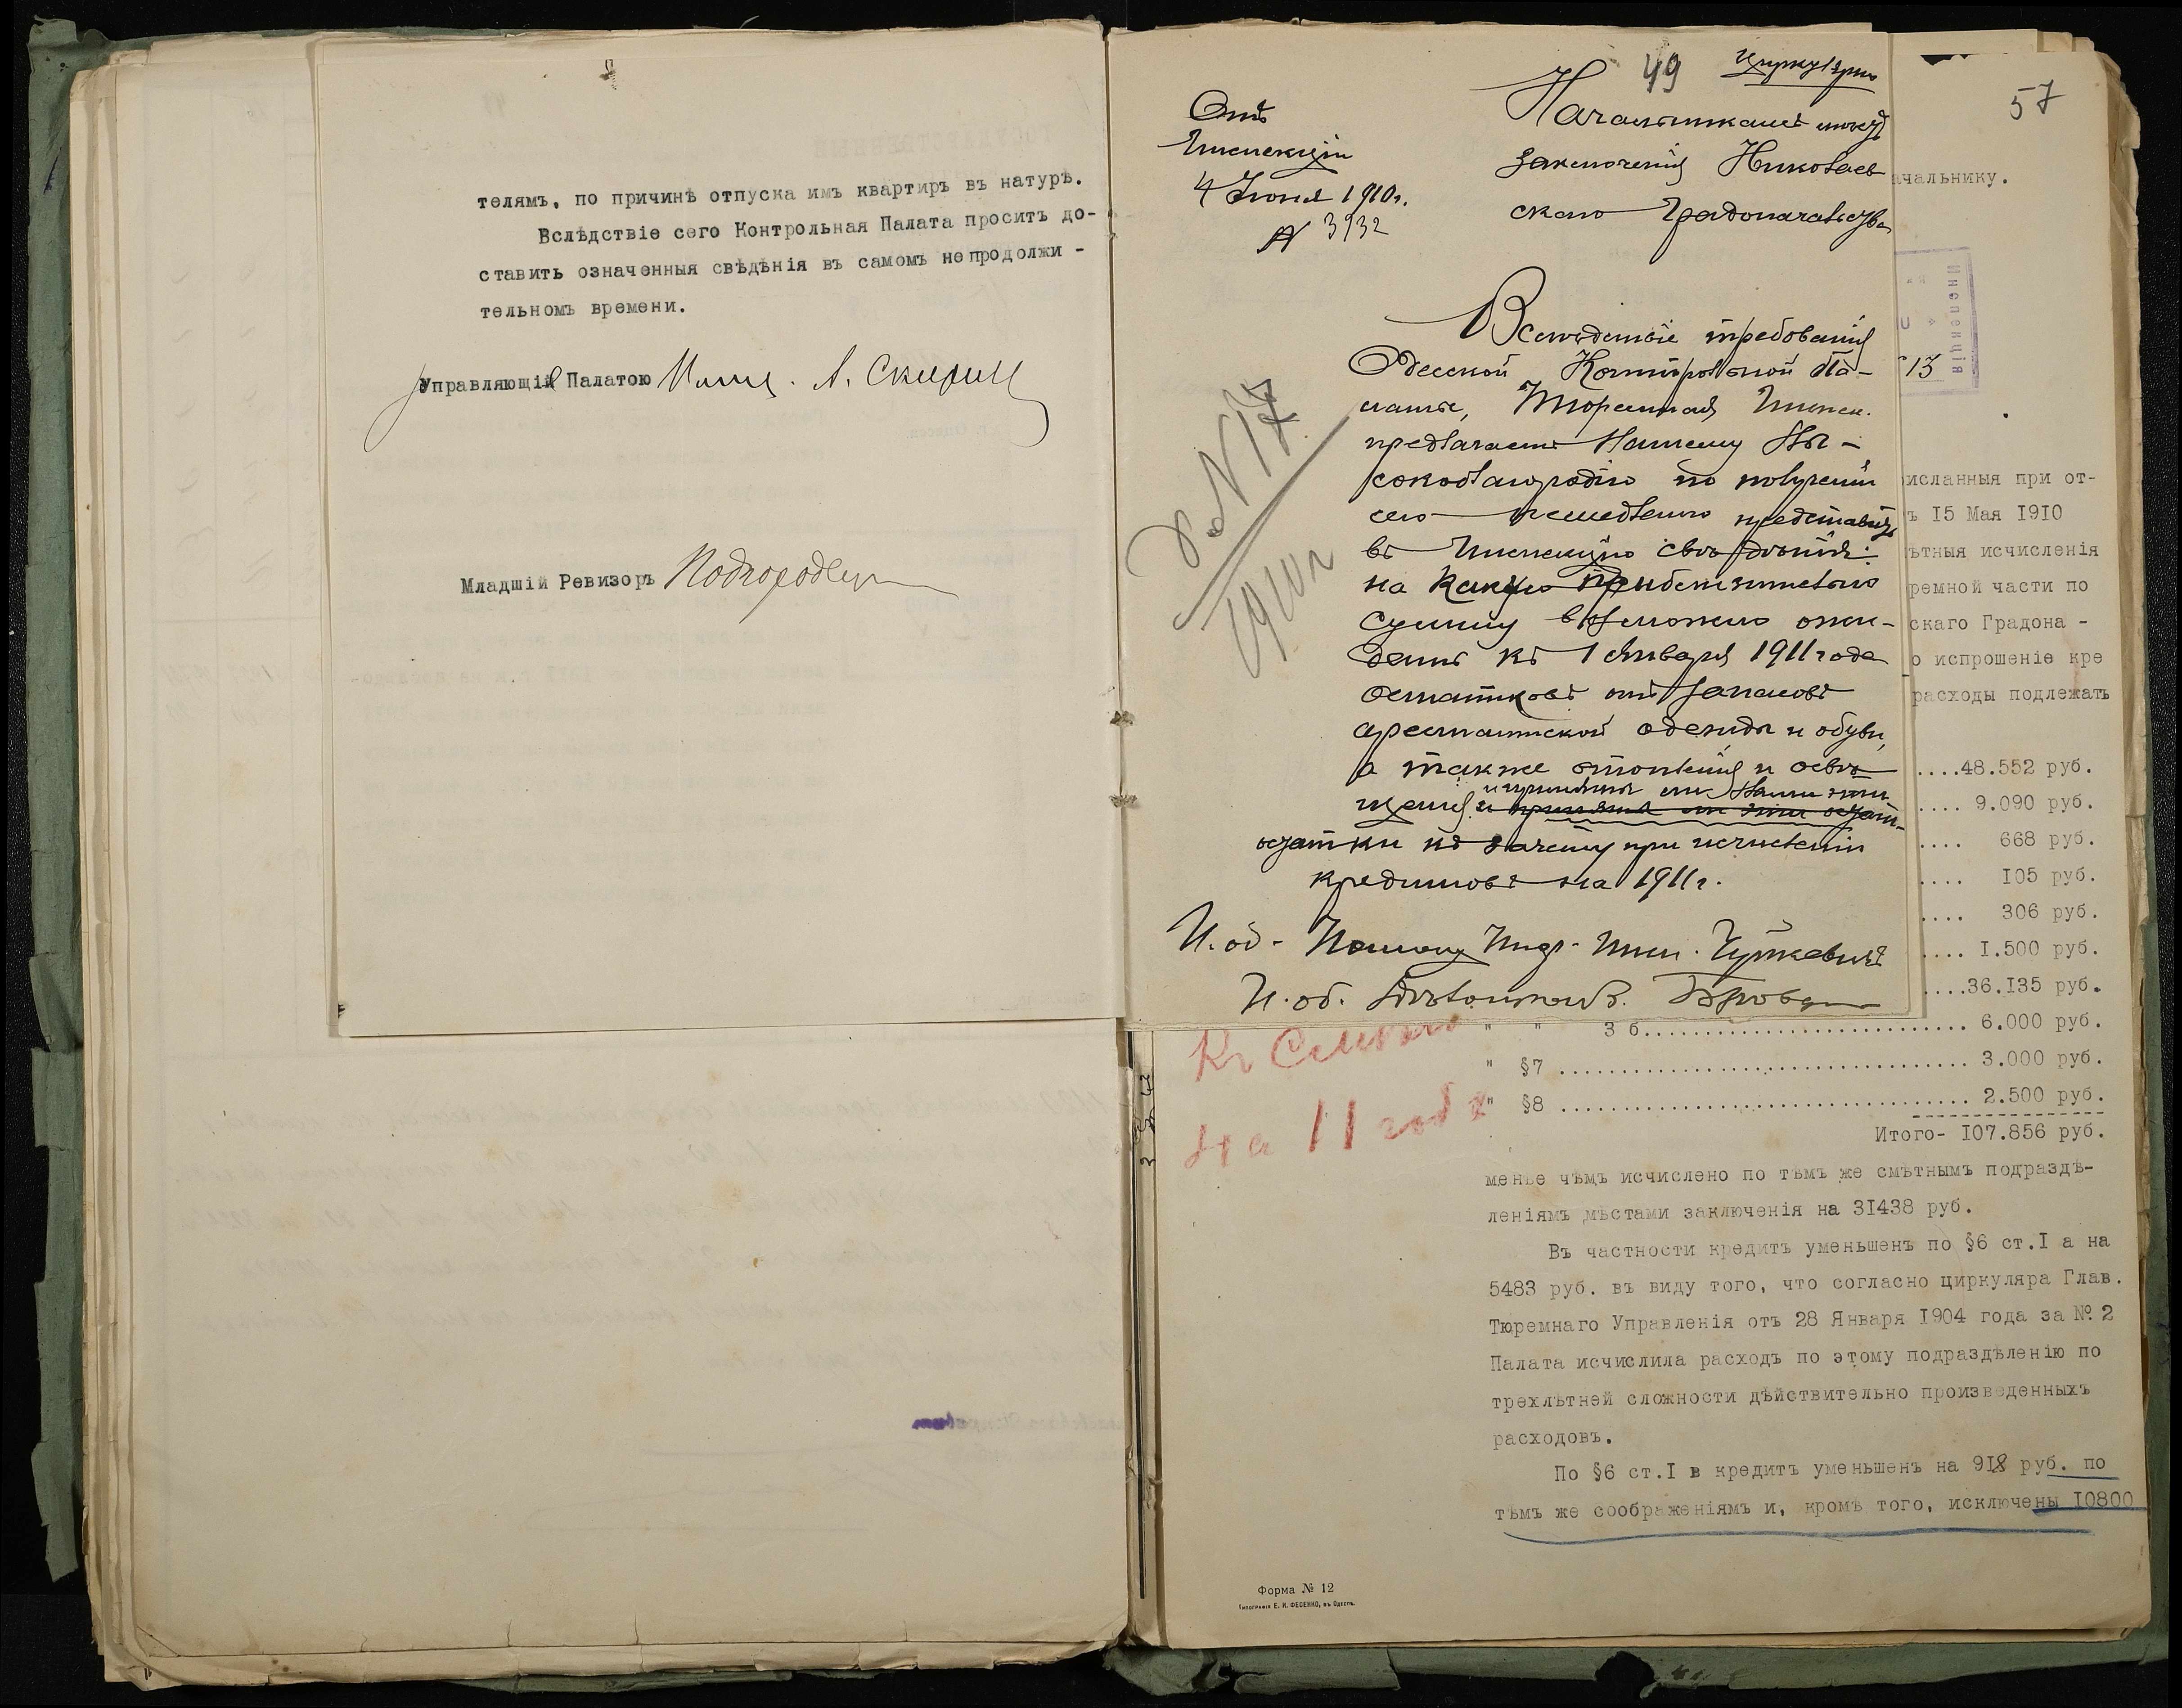 телямъ, по причинѣ отпуска имъ квартиръ въ натурѣ.
Вслѣдствіе сего Контрольная Палата проситъ до-
ставить означенныя свѣдѣнія въ самомъ непродолжи -
тельномъ времени.
Управляющій Палатою
Младшій Ревизоръ
49
Циркулярно
Отъ
Инспекціи
4 Іюня 1910г.
№ 3932
Начальникамъ мѣстъ
заключенія Николаев
скаго Градоначальства
Вслѣдствіе требованія
Одесской Контрольной Па-
латы, Тюремная Инспек.
предлагаетъ Вашему Вы-
сокоблагородію по полученіи
сего немедленно представить
въ Инспекцію свѣдѣнія:
на какую приблизительно
сумму возможно ожи-
дать къ 1 Января 1911 года
остатковъ отъ запасовъ
арестантской одежды и обуви,
а также отопленія и освѣ
щенія и приняты ли Вами эти
и приняты ли эти остат-
остатки къ зачету при исчисленіи
кредитовъ на 1911 г.
И. об.
И. об.
д. N 17
1910 г
57
ачальнику.
Инспекція
13
исланныя при от-
ъ 15 Мая 1910
ѣтныя исчисленія
ремной части по
скаго Градона -
о испрошеніе кре
расходы подлежатъ
....48.552 руб.
.... 9.090 руб.
.... 668 руб.
.... 105 руб.
.... 306 руб.
.... 1.500 руб.
....36.135 руб.
" " 3 б........................... 6.000 руб.
" §7 .................................. 3.000 руб.
" §8 .................................. 2.500 руб.
Итого- 107.856 руб.
Къ Смѣтѣ
на 11 годъ
менѣе чѣмъ исчислено по тѣмъ же смѣтнымъ подраздѣ-
леніямъ мѣстами заключенія на 31438 руб.
Въ частности кредитъ уменьшенъ по §6 ст.I а на
5483 руб. въ виду того, что согласно циркуляра Глав.
Тюремнаго Управленія отъ 28 Января 1904 года за № 2
Палата исчислила расходъ по этому подраздѣленію по
трехлѣтней сложности дѣйствительно произведенныхъ
расходовъ.
По §6 ст.I в кредитъ уменьшенъ на 918 руб. по
тѣмъ же соображеніямъ и, кромѣ того, исключены 10800
Форма № 12
Типографія Е. И. ФЕСЕНКО, въ Одессѣ.